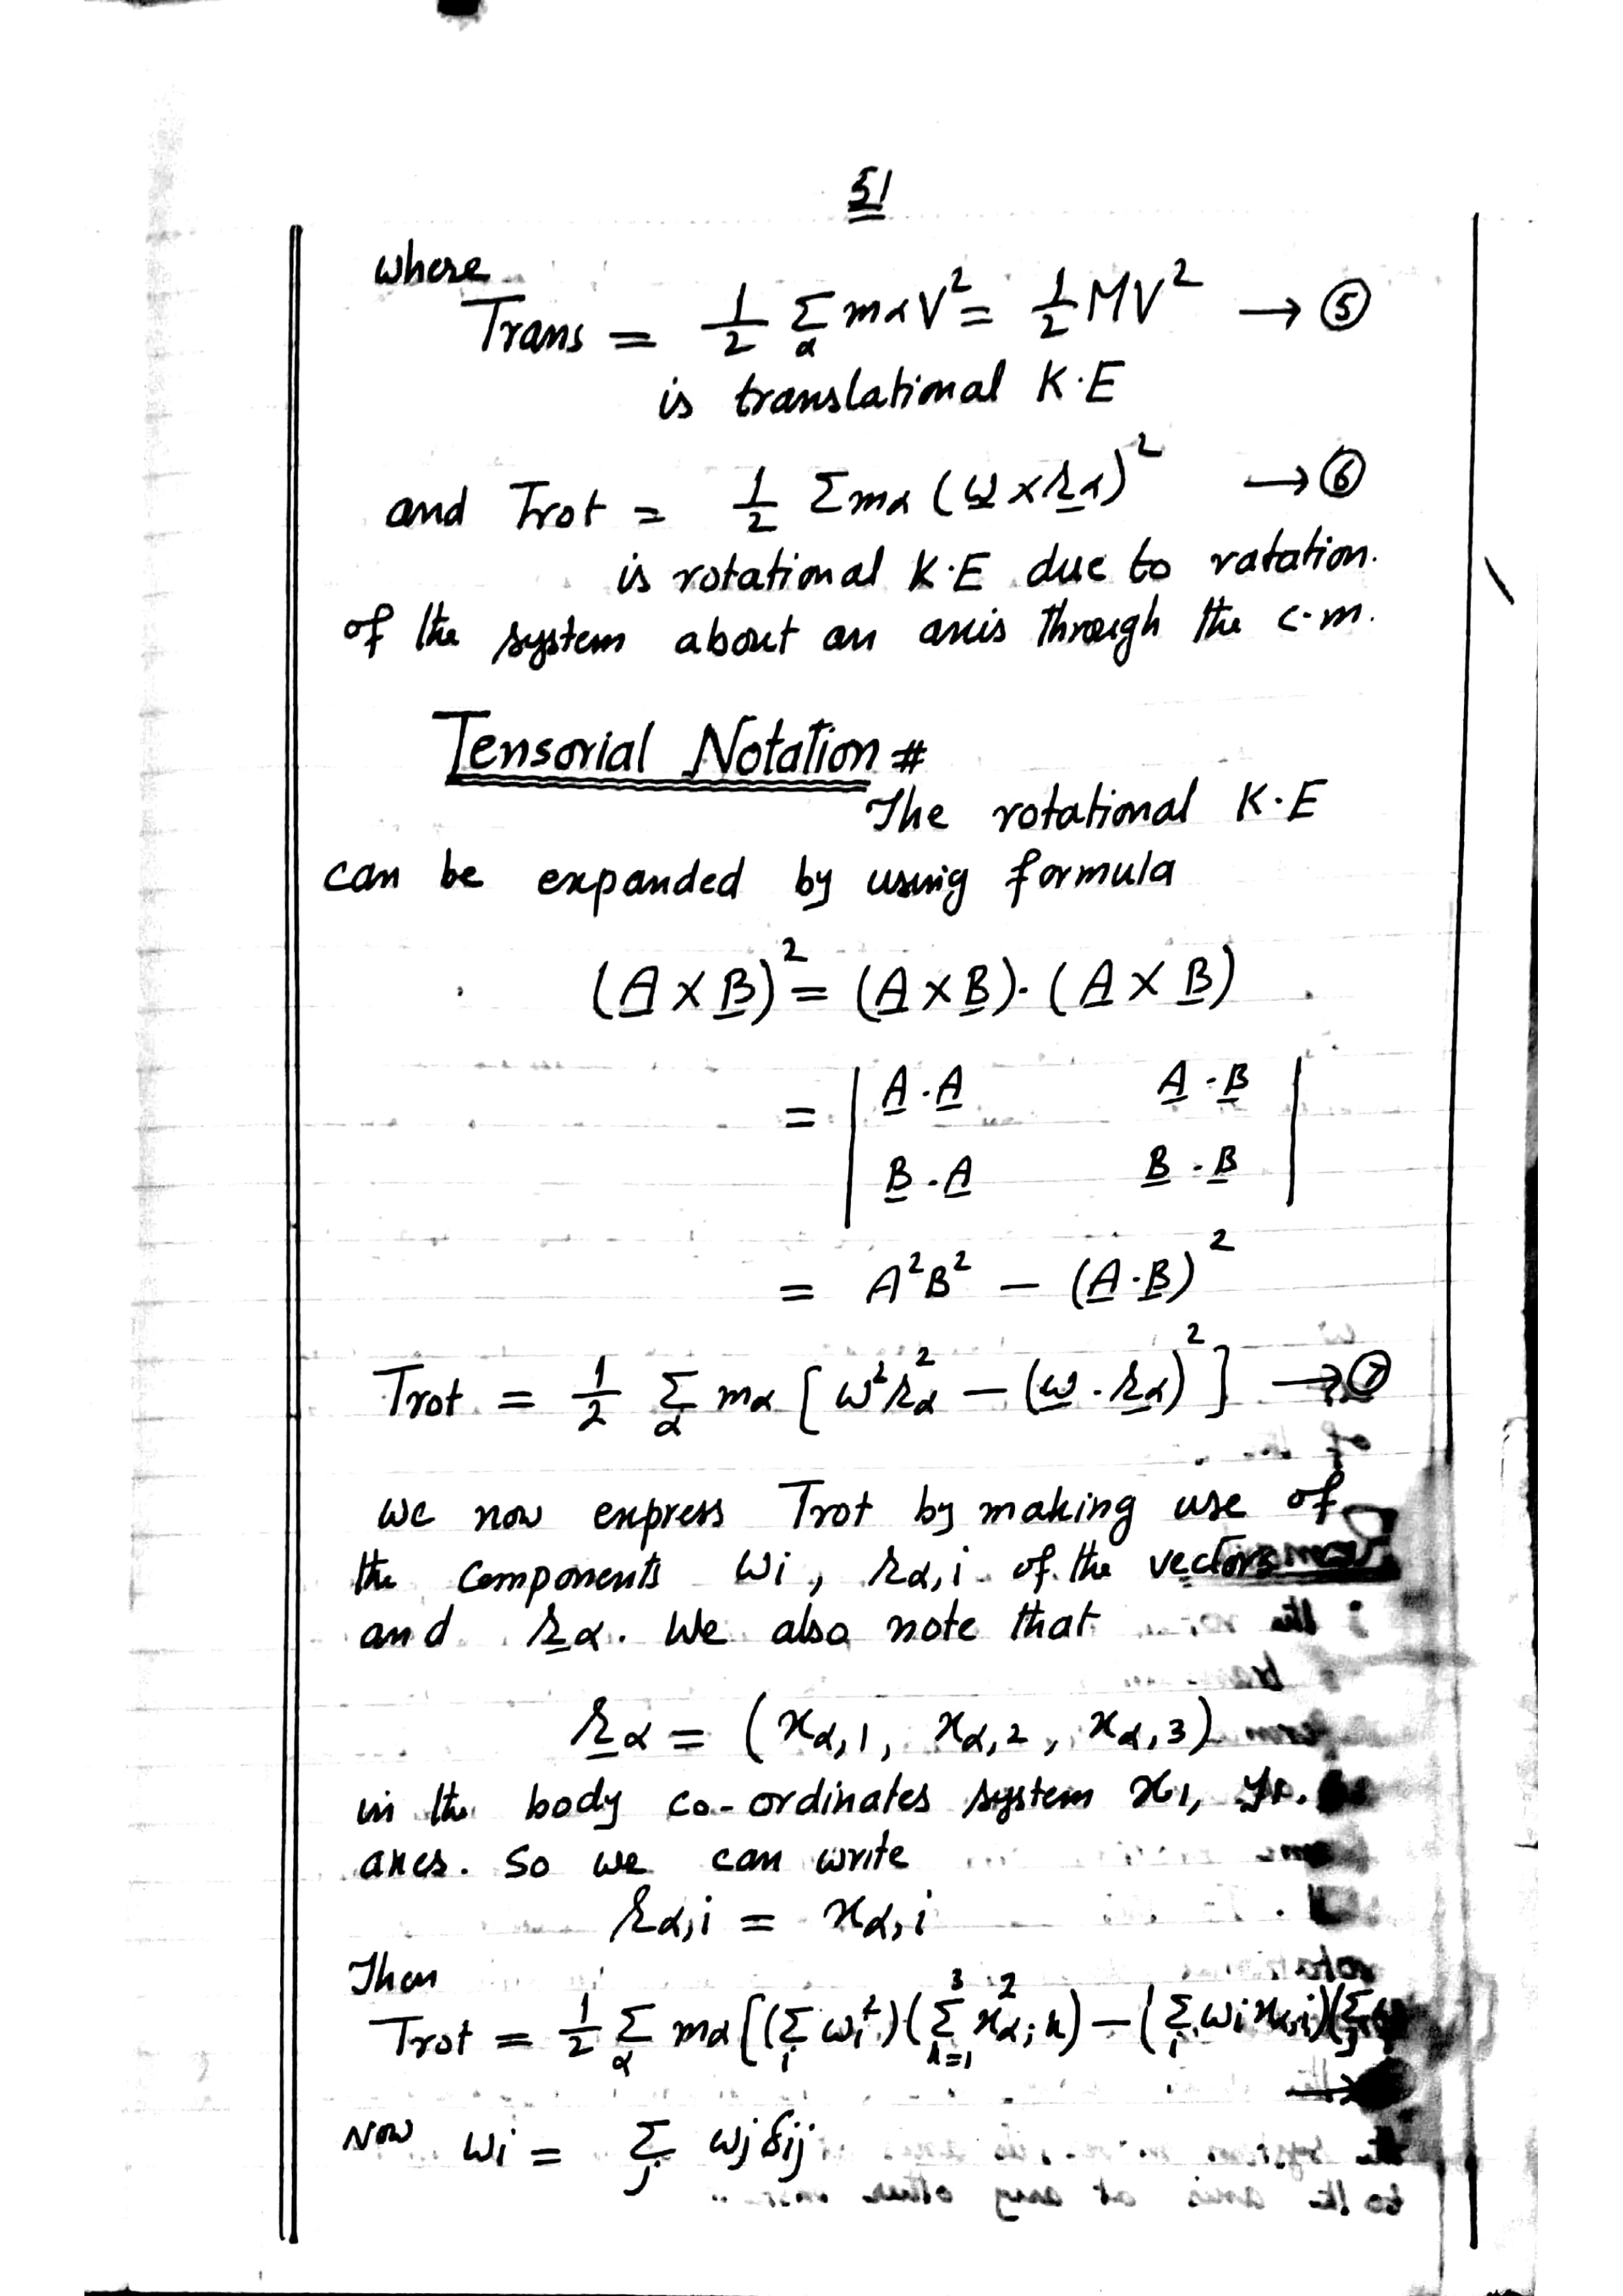 51
where
Trans = 1/2 Σ_α mα V² = 1/2 MV² → ⑤
is translational K.E
and Trot = 1/2 Σ mα (ω × rα)² → ⑥
is rotational K.E due to ratation.
of the system about an axis through the c.m.
Tensorial Notation #
The rotational K.E
can be expanded by using formula
(A × B)² = (A × B)·(A × B)
= | A·A A·B |
| B·A B·B |
= A²B² − (A·B)²
Trot = 1/2 Σ_α mα [ω²rα² − (ω·rα)²] → ⑦
we now express Trot by making use of
the components ωi, rα,i of the vectors
and rα. We also note that
rα = (xα,1, xα,2, xα,3)
in the body co-ordinates system x1,
axes. So we can write
rα,i = xα,i
Then
Trot = 1/2 Σ_α mα [(Σ_i ωi²)(Σ_{k=1}^3 x²α;k) − (Σ_i ωi xα,i)(Σ_j
→
Now ωi = Σ_j ωj δij